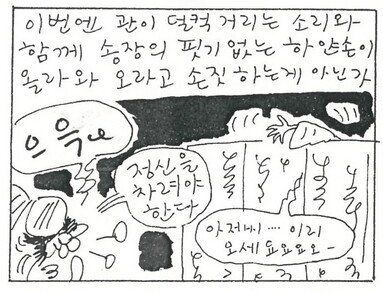 이번엔 관이 덜컥 거리는 소리와
함께 송장의 핏기 없는 하얀손이
올라와 오라고 손짓 하는게 아닌가
으윽
정신을
차려야
한다
아저씨 ···· 이리
오세요요요오 -